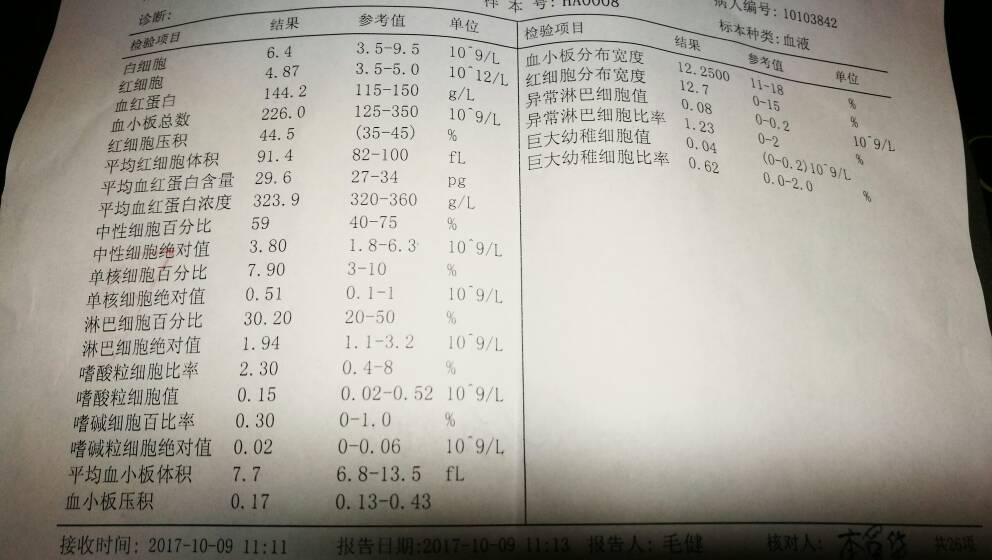 诊断:
样本号: HA0008
病人编号: 10103842
标本种类: 血液
检验项目 结果 参考值 单位
白细胞 6.4 3.5-9.5 10^9/L
红细胞 4.87 3.5-5.0 10^12/L
血红蛋白 144.2 115-150 g/L
血小板总数 226.0 125-350 10^9/L
红细胞压积 44.5 (35-45) %
平均红细胞体积 91.4 82-100 fL
平均血红蛋白含量 29.6 27-34 pg
平均血红蛋白浓度 323.9 320-360 g/L
中性细胞百分比 59 40-75 %
中性细胞绝对值 3.80 1.8-6.3 10^9/L
单核细胞百分比 7.90 3-10 %
单核细胞绝对值 0.51 0.1-1 10^9/L
淋巴细胞百分比 30.20 20-50 %
淋巴细胞绝对值 1.94 1.1-3.2 10^9/L
嗜酸粒细胞比率 2.30 0.4-8 %
嗜酸粒细胞值 0.15 0.02-0.52 10^9/L
嗜碱细胞百比率 0.30 0-1.0 %
嗜碱粒细胞绝对值 0.02 0-0.06 10^9/L
平均血小板体积 7.7 6.8-13.5 fL
血小板压积 0.17 0.13-0.43
检验项目 结果 参考值 单位
血小板分布宽度 12.2500 11-18 %
红细胞分布宽度 12.7 0-15 %
异常淋巴细胞值 0.08 0-0.2 10^9/L
异常淋巴细胞比率 1.23 0-2 %
巨大幼稚细胞值 0.04 (0-0.2)10^9/L
巨大幼稚细胞比率 0.62 0.0-2.0 %
接收时间: 2017-10-09 11:11 报告日期:2017-10-09 11:13 报告人: 毛健 核对人: 共26项